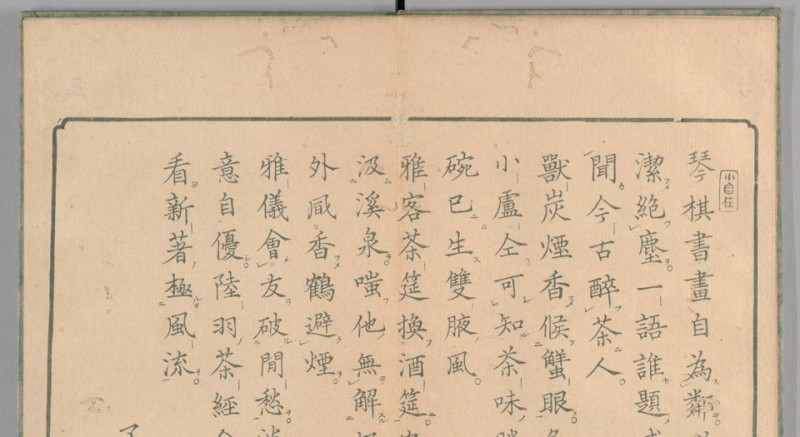 小自在
琴棋書畫自為鄰
潔絕塵一語誰題
聞今古醉茶人
獸炭煙香候蟹眼
小盧仝可知茶味
碗已生雙腋風
雅客茶筵換酒筵
汲溪泉嗤他無解
外風香鶴避煙
雅儀會友破閒愁
意自優陸羽茶經
看新著極風流